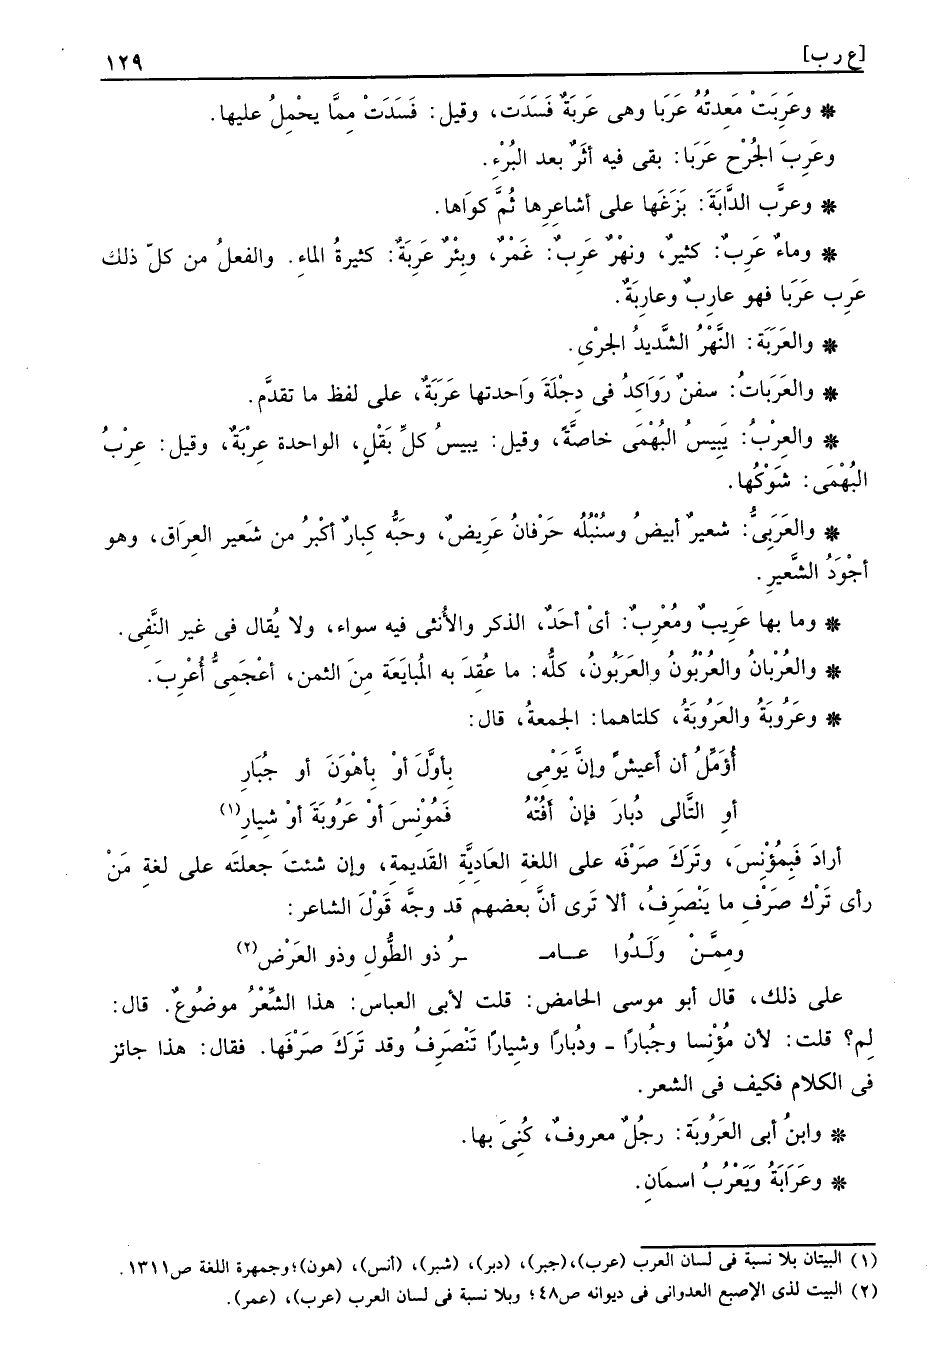 [ع ر ب] ١٢٩
* وعَرِبَتْ مَعِدتُهُ عَرَبا وهى عَرِبَةٌ فَسَدَت، وقيل: فَسَدَتْ مِمَّا يحْمِلُ عليها.
وعَرِبَ الجُرْح عَرَبا: بقى فيه أثَرٌ بعد البُرْءِ.
* وعرَّب الدَّابَةَ: بَزَغَها على أشاعرِها ثُمَّ كواَها.
* وماءٌ عَرِبٌ: كثيرٌ، ونهْرٌ عَرِبٌ: غَمْرٌ، وبِئْرٌ عَرِبَةٌ: كثيرةُ الماءِ. والفعلُ من كلّ ذلك
عَرِب عَرَبا فهو عارِبٌ وعارِبَةٌ.
* والعَرَبَة: النَّهْرُ الشَّديدُ الجرْىِ.
* والعَرَباتُ: سفنٌ رَوَاكِدُ فى دِجْلَةَ وَاحدتها عَرَبَةٌ، على لفظ ما تقدَّم.
* والعِرْبُ: يَبِيسُ البُهْمَى خاصَّةً، وقيل: يبيسُ كلِّ بَقْلٍ، الواحدة عِرْبَةٌ، وقيل: عِرْبُ
البُهْمَى: شَوْكُها.
* والعَرَبىُّ: شعيرٌ أبيضُ وسُنْبُلُه حَرْفانُ عَرِيضٌ، وحَبُّه كِبارٌ أكْبرُ من شَعير العراَق، وهو
أجْوَدُ الشَّعيرِ.
* وما بها عَرِيبٌ ومُعْرِبٌ: أىْ أحَدٌ، الذكر والأُنثى فيه سواء، ولا يُقال فى غير النَّفِى.
* والعُرْبانُ والعُرْبُونُ والعَرَبُونُ، كلُّه: ما عُقِدَ به المُبايَعَة مِنَ الثمن، أعْجَمىٌّ أُعْرِبَ.
* وعَرُوبَةُ والعَرُوبَةُ، كلتاهما: الجمعةُ، قال:
أُؤَمِّلُ أن أعيشً وإنَّ يَوْمِى بأوَّلَ أوْ بِأهْوَنَ أو جُبَارِ
أو التَّالى دُبارَ فإنْ أَفُتْهُ فَمُوْنِسَ أوْ عَرُوبَةَ أوْ شيارِ(١)
أرادَ فَبِمُؤْنِسَ، وتَرَكَ صَرْفَه على اللغة العاديَّةِ القَديمة، وإن شئتَ جعلتَه على لغةِ مَنْ
رأى تَرْك صَرْفِ ما يَنْصَرِفُ، ألا تَرى أنَّ بعضهم قد وجَّه قَوْلَ الشاعر:
وممَّـنْ وَلَـدُوا عـامـ ـرُ ذو الطُّول وذو العَرْض(٢)
على ذلك، قال أبو موسى الحامض: قلت لأبى العباس: هذا الشِّعْرُ موضُوعٌ. قال:
لِم؟ قلت: لأن مُؤْنِسا وجُباراً ـ ودُباراً وشيِاراً تَنْصَرِفُ وقد تَرَكَ صَرْفَها. فقال: هذا جائز
فى الكلام فكيف فى الشعر.
* وابنُ أبى العَرُوبَة: رجُلٌ معروفٌ، كُنِىَ بها.
* وعَرَابَةُ ويَعْرُبُ اسمَانِ.
(١) البيتان بلا نسبة فى لسان العرب (عرب)،(جبر)، (دبر)، (شبر)، (أنس)، (هون)؛وجمهرة اللغة ص١٣١١.
(٢) البيت لذى الإصبع العدوانى فى ديوانه ص٤٨؛ وبلا نسبة فى لسان العرب (عرب)، (عمر).